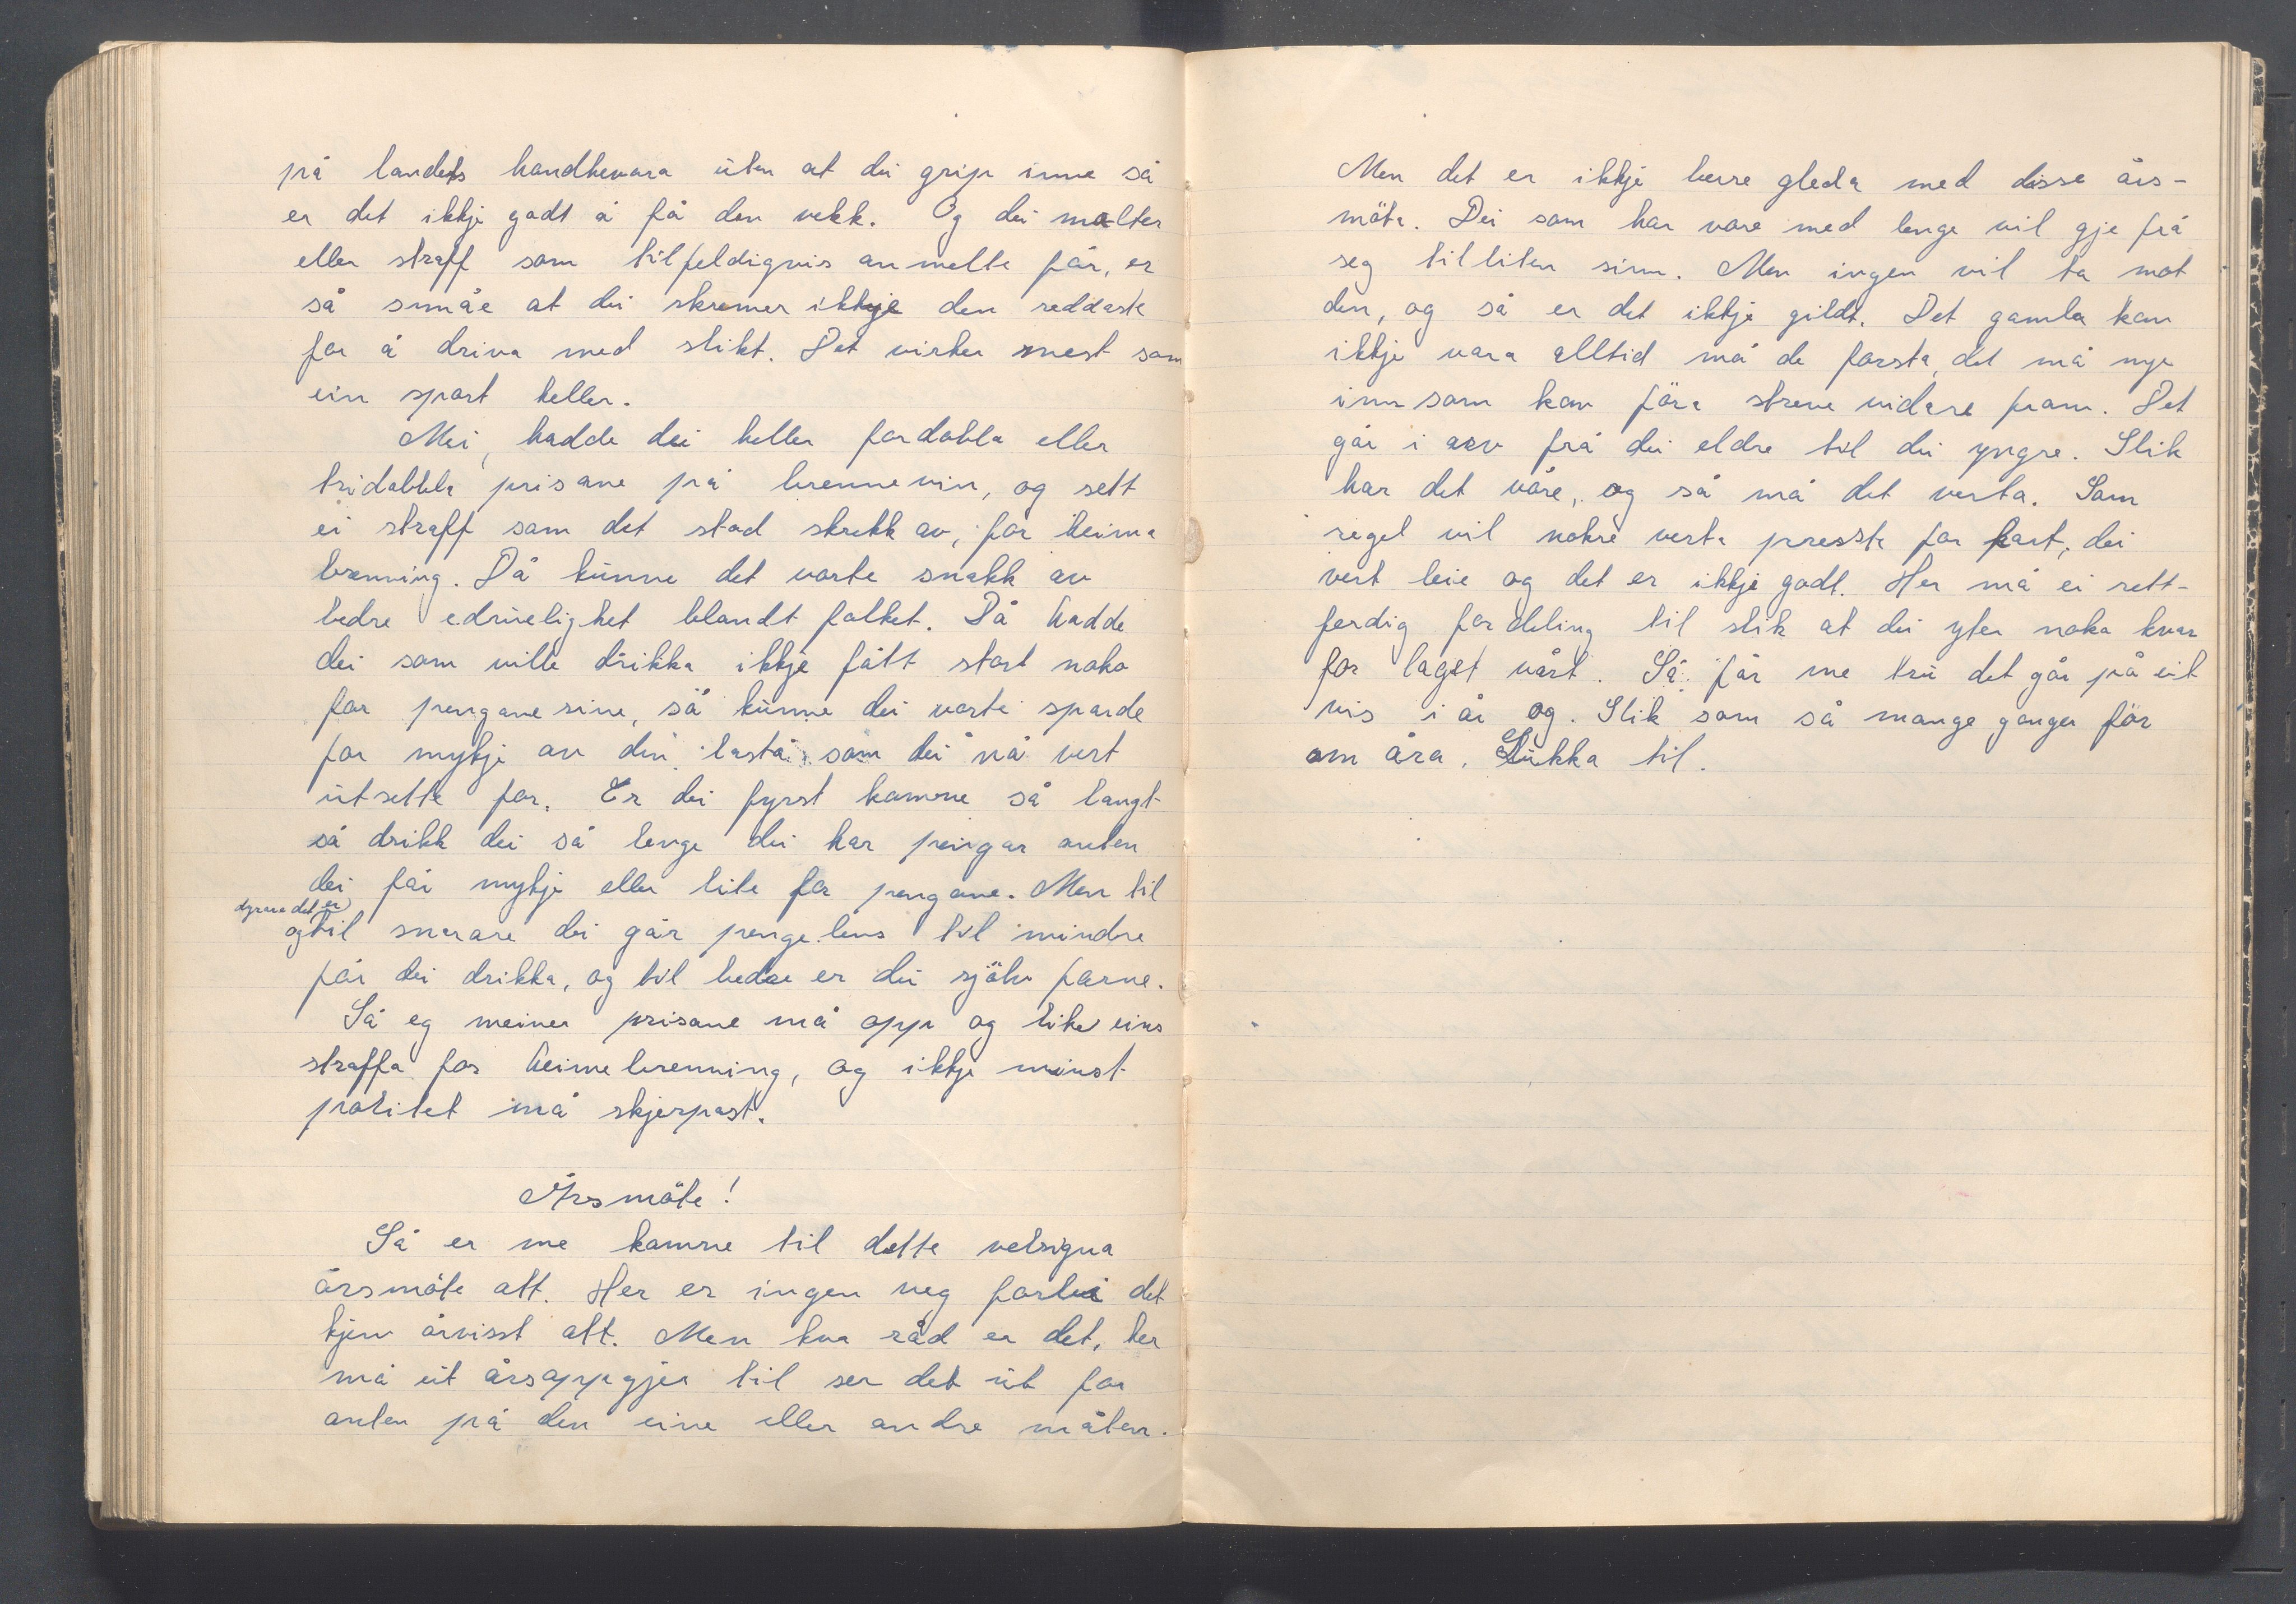 på landets handhevara uten at dei grip inne så
er det ikkje godt å få den vekk. Og dei molter
eller straff som tilfeldigvis anmelte får, er
så småe at dei skremer ikkje den reddaste
for å driva med slikt. Det virker mest som
ein sport heller.
Nei, hadde dei heller fordobla eller
tridobbla prisane på brennevin, og sett
ei straff som det stod skrekk av, for heima
brenning. Då kunne det vorte snakk av
bedre edruelighet blandt folket. Då hadde
dei som ville drikka ikkje fått stort noko
for pengane sine, så kunne dei vorte sparde
for mykje av din lasta som dei nå vert
utsette for. Er dei fyrst komne så langt
så drikk dei så lenge dei har pengar anten
dei får mykje eller lite for pengane. Men til
dyrare det er
og til snarare dei går pengelens til mindre
får dei drikka, og til bedre er dei sjölv farne.
Så eg meiner prisane må opp og like eins
straffa for heimebrenning, og ikkje minst
politet må skjerpast.
Årsmöte!
Så er me komne til dette velsigna
årsmöte att. Her er ingen veg forbi det
kjem årvisst att. Men kva råd er det, her
må eit årsoppgjer til ser det ut for
anten på den eine eller andre måten.
Men det er ikkje berre gleda med disse års-
möta. Dei som har vore med lenge vil gje frå
seg tilliten sinn. Men ingen vil ta mot
den, og så er det ikkje gildt. Det gamla kan
ikkje vara alltid må de forsta, det må nye
inn som kan föra streve vidare fram. Det
går i arv frå dei eldre til dei yngre. Slik
har det våre, og så må det verta. Som
regel vil nokre verta pressta for hart, dei
vert leie og det er ikkje godt. Her må ei rett-
ferdig fordeling til slik at dei yter noka kvar
for laget vårt. Så får me tru det går på eit
vis i år og. Slik som så mange ganger för
om åra. Lukka til.